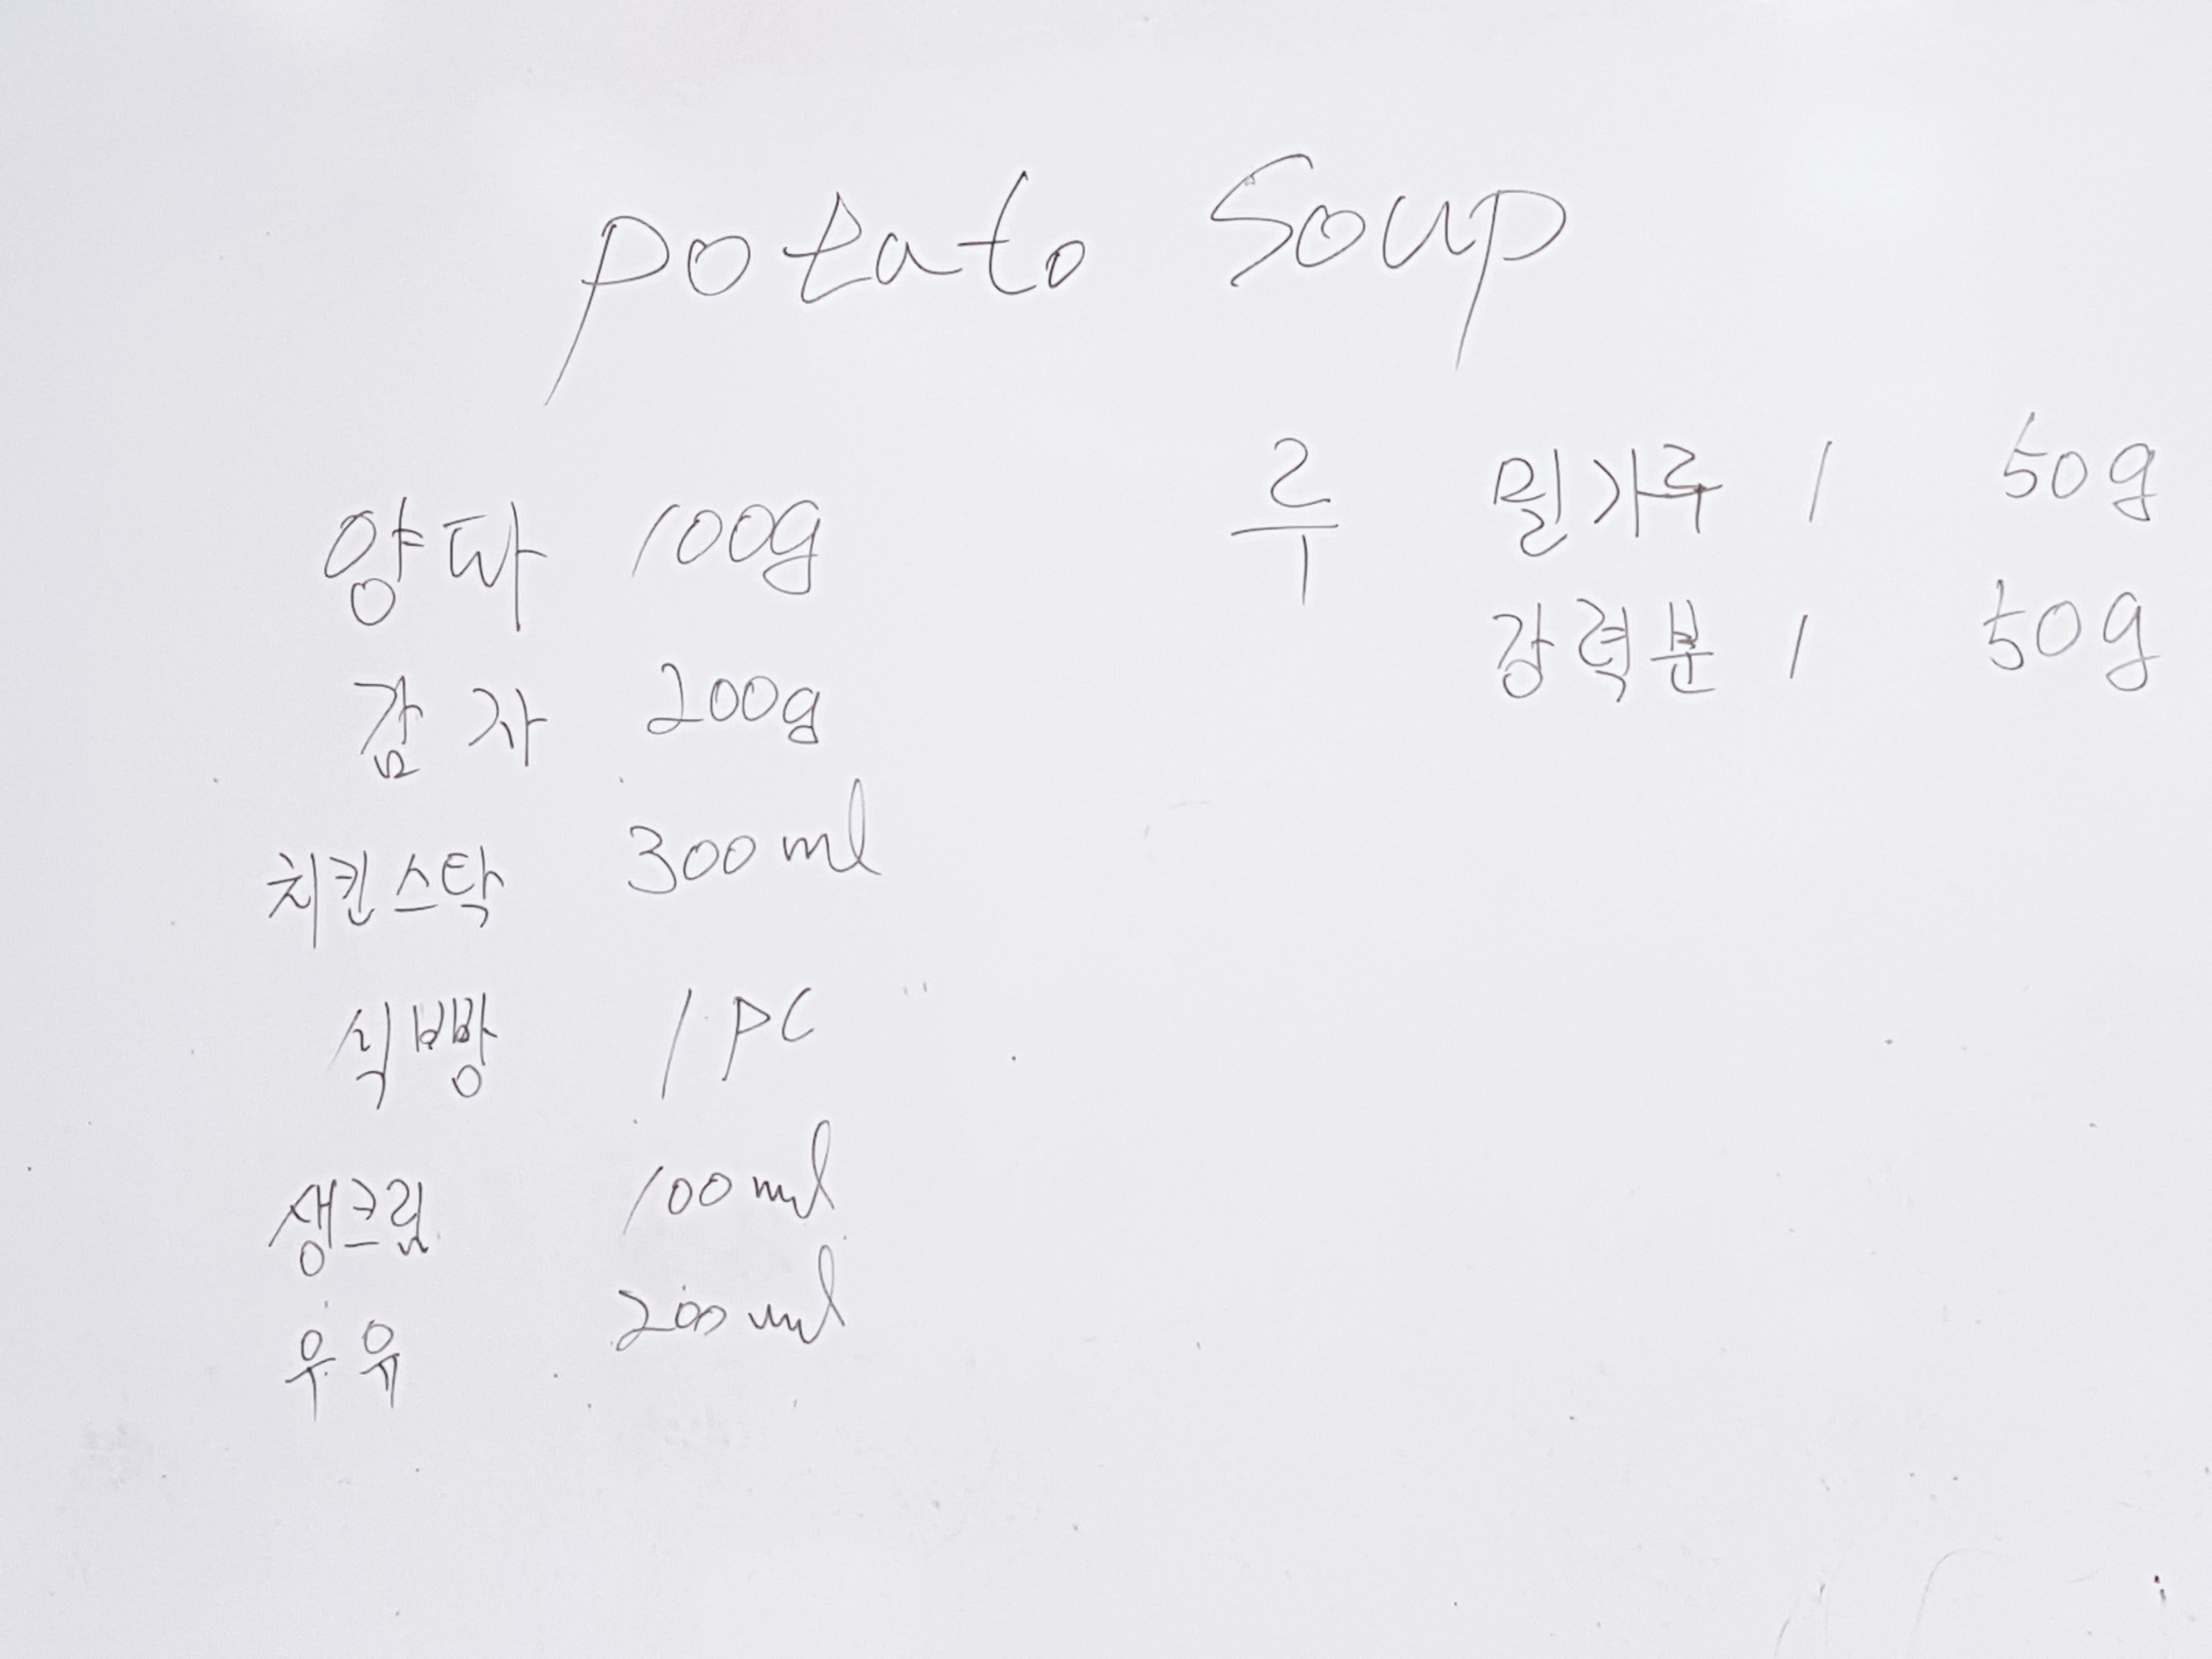 potato Soup
양파 100g
감자 200g
치킨스탁 300ml
식빵 1PC
생크림 100ml
우유 200ml
루 밀가루 1 50g
강력분 1 50g